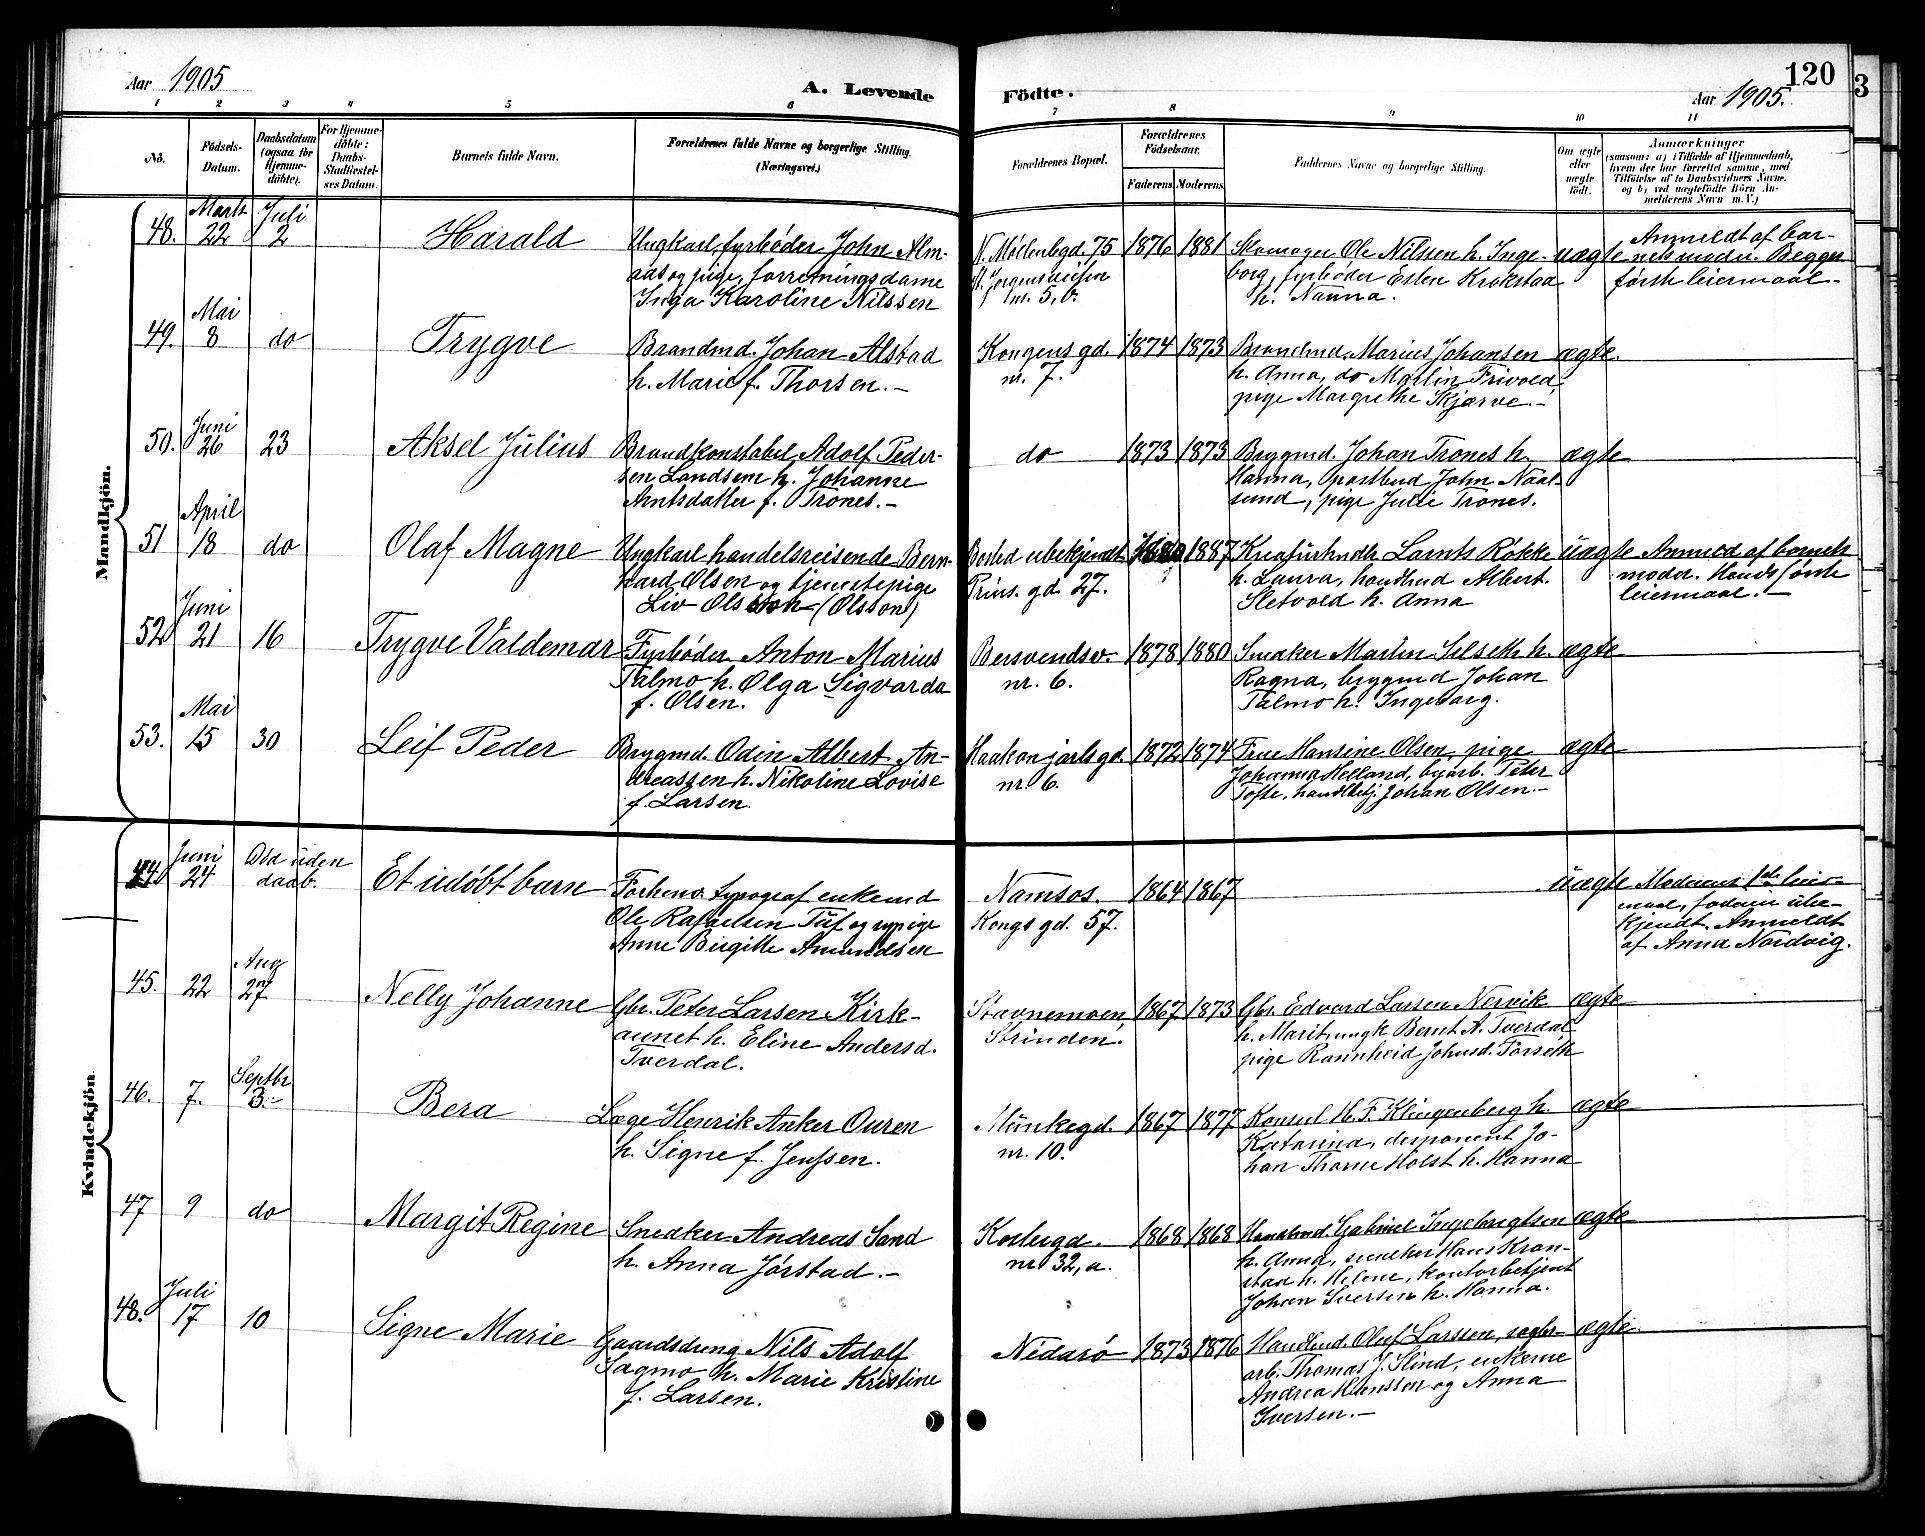 Aar 1905
A. Levende
Födte.
120
Aar 1905.
3
1 2 3 4 5 6 7 8 9 10 11
No.
Födsels-
Datum.
Daabsdatum
(ogsaa for
Hjemme-
döbte).
For Hjemme-
döbte:
Daabs-
Stadfæstel-
ses Datum.
Barnets fulde Navn.
Forældrenes fulde Navne og borgerlige Stilling.
(Næringsvei.)
Forældrenes Bopæl.
Forældrenes
Födselsaar.
Faderens Moderens
Faddernes Navne og borgerlige Stilling.
Om ægte
eller
uægte
födt.
Anmærkninger
(saasom: a) i Tilfælde af Hjemmedaab,
hvem der har forrettet samme, med
Tilföielse af to Daabsvidners Navne,
og b) ved uægtefödte Börn An-
melderens Navn m. V.)
Mandkjön.
48.
Marts
22
Juli
2
Harald
Ungkarl, fyrbøder John Alm-
aas og pige, forretningsdame
Inga Karoline Nilssen
N. Møllenbgd. 75
St. Jørgensveiten
nr. 5, b.
1876 1881
Skomager Ole Nilssen h. Inge-
borg, fyrbøder Esten Krokstad
h. Nanna.
uægte
Anmeldt af bar-
nets moder. Begges
første leiermaal.
49.
Mai
8
do
Trygve
Brandmd. Johan Alstad
h. Marie f. Thorsen.
Kongens gd.
nr. 7.
1874 1873
Brandmd. Marius Johansen
h. Anna, do Martin Frivold,
pige Margrethe Skjærve.
ægte.
50.
Juni
26
23
Aksel Julius
Brandkonstabel Adolf Peder-
sen Landsem h. Johanne
Arntsdatter f. Trones.
do
1873 1873
Bryggmd. Johan Trones h.
Hanna, postbud John Naal-
sund, pige Julie Trones.
ægte
51
April
18
do
Olaf Magne
Ungkarl handelsreisende Bern-
hard Olsen og tjenestepige
Liv Olsson (Olsson)
Bosted ubekjendt
Prins. gd. 27.
1887
Kreaturhndlr. Lornts Røkke
h. Laura, handlmd Albert
Sletvold h. Anna
uægte
Anmed af barnets
moder. Hends første
leiermaal.
52
Juni
21
16
Trygve Valdemar
Fyrbøder Anton Marius
Talmo h. Olga Sigvarda
f. Olsen.
Bersvendsv.
nr. 6.
1878 1880
Snedker Martin Selseth h.
Ragna, bryggmd Johan
Talmo h. Ingeborg.
ægte
53.
Mai
15
30
Leif Peder
Bryggmd. Odin Albert An-
dreassen h. Nikoline Lovise
f. Larsen.
Haakon jarls gd.
nr 6.
1872 1874
Frue Hansine Olsen, pige
Johanna Helland, byarb. Peter
Tofte, handlbtj. Johan Olsen.
ægte
Kvindekjön.
44.
Juni
24
Død uden
daab.
Et udøbt barn
Forhenv. typograf enkemd
Ole Rafaelsen Tuf og sypige
Anne Birgitte Amundsen
Namsos.
Kongs gd. 57.
1864 1867
uægte
Moderens 1ste leier-
maal, faderen ube-
kjendt. Anmeldt
af Anna Nordvig.
45.
22
Aug
27
Nelly Johanne
Gbr. Peter Larsen Kirk-
aunet h. Eline Andersd.
Tverdal.
Stavnemoen,
Strinden.
1867 1873
Gbr. Edvard Larsen Nervik
h. Marit, ungk Bernt A. Tverdal
pige Rannheid Johnsd. Forseth
ægte
46.
7.
Septbr
3.
Bera
Læge Henrik Anker Ouren
h. Signe f. Jenssen.
Munkegd.
nr. 10.
1867 1877
Konsul H. F. Klingenberg h.
Katarina, disponent Jo-
han Thorne Holst h. Hanna
ægte
47
9
do
Margit Regine
Snedker Andreas Sand
h. Anna Jørstad.
Kostergd.
nr 32, a.
1868 1868
Handlmd. Gabriel Ingebrigtsen
h. Anna, snedker Hans Kran-
stad h. Helene, kontorbetjent
Johan Iversen h. Hanna.
ægte
48.
Juli
17
10
Signe Marie
Gaardsdreng Nils Adolf
Sagmo h. Marie Kristine
f. Larsen.
Nidarø
1873 1876
Handlmd. Oluf Larssen, sagbr-
arb. Thomas J. Slind, enkerne
Andrea Hanssen og Anna
Iversen.
ægte